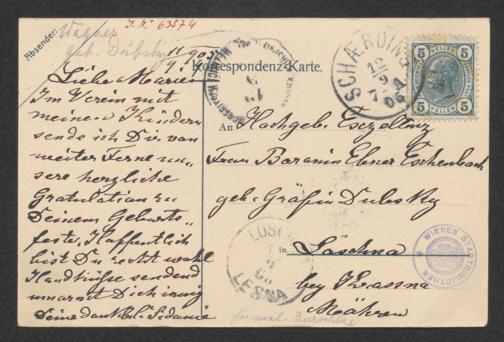 J.N. 63574
Absender:
Korrespondenz-Karte.
Liebe Marie!
Im Verein mit
meinen Kindern
sende ich Dir von
weiter Ferne un-
sere herzliche
Gratulation zu
Deinem Geburts-
feste, Hoffentlich
bist Du recht wohl
Handküsse sendend
umarmt Dich innig
Deine dankb.
An Hochgeb. Exzellenz
Frau Baronin Ebner Eschenbach
geb. Gräfin Dubsky
in Löschna
bey
Mähren
SCHÆRDING
5 5
5 HELLER 5
LESNA
WIENER STADTBIBLIOTHEK